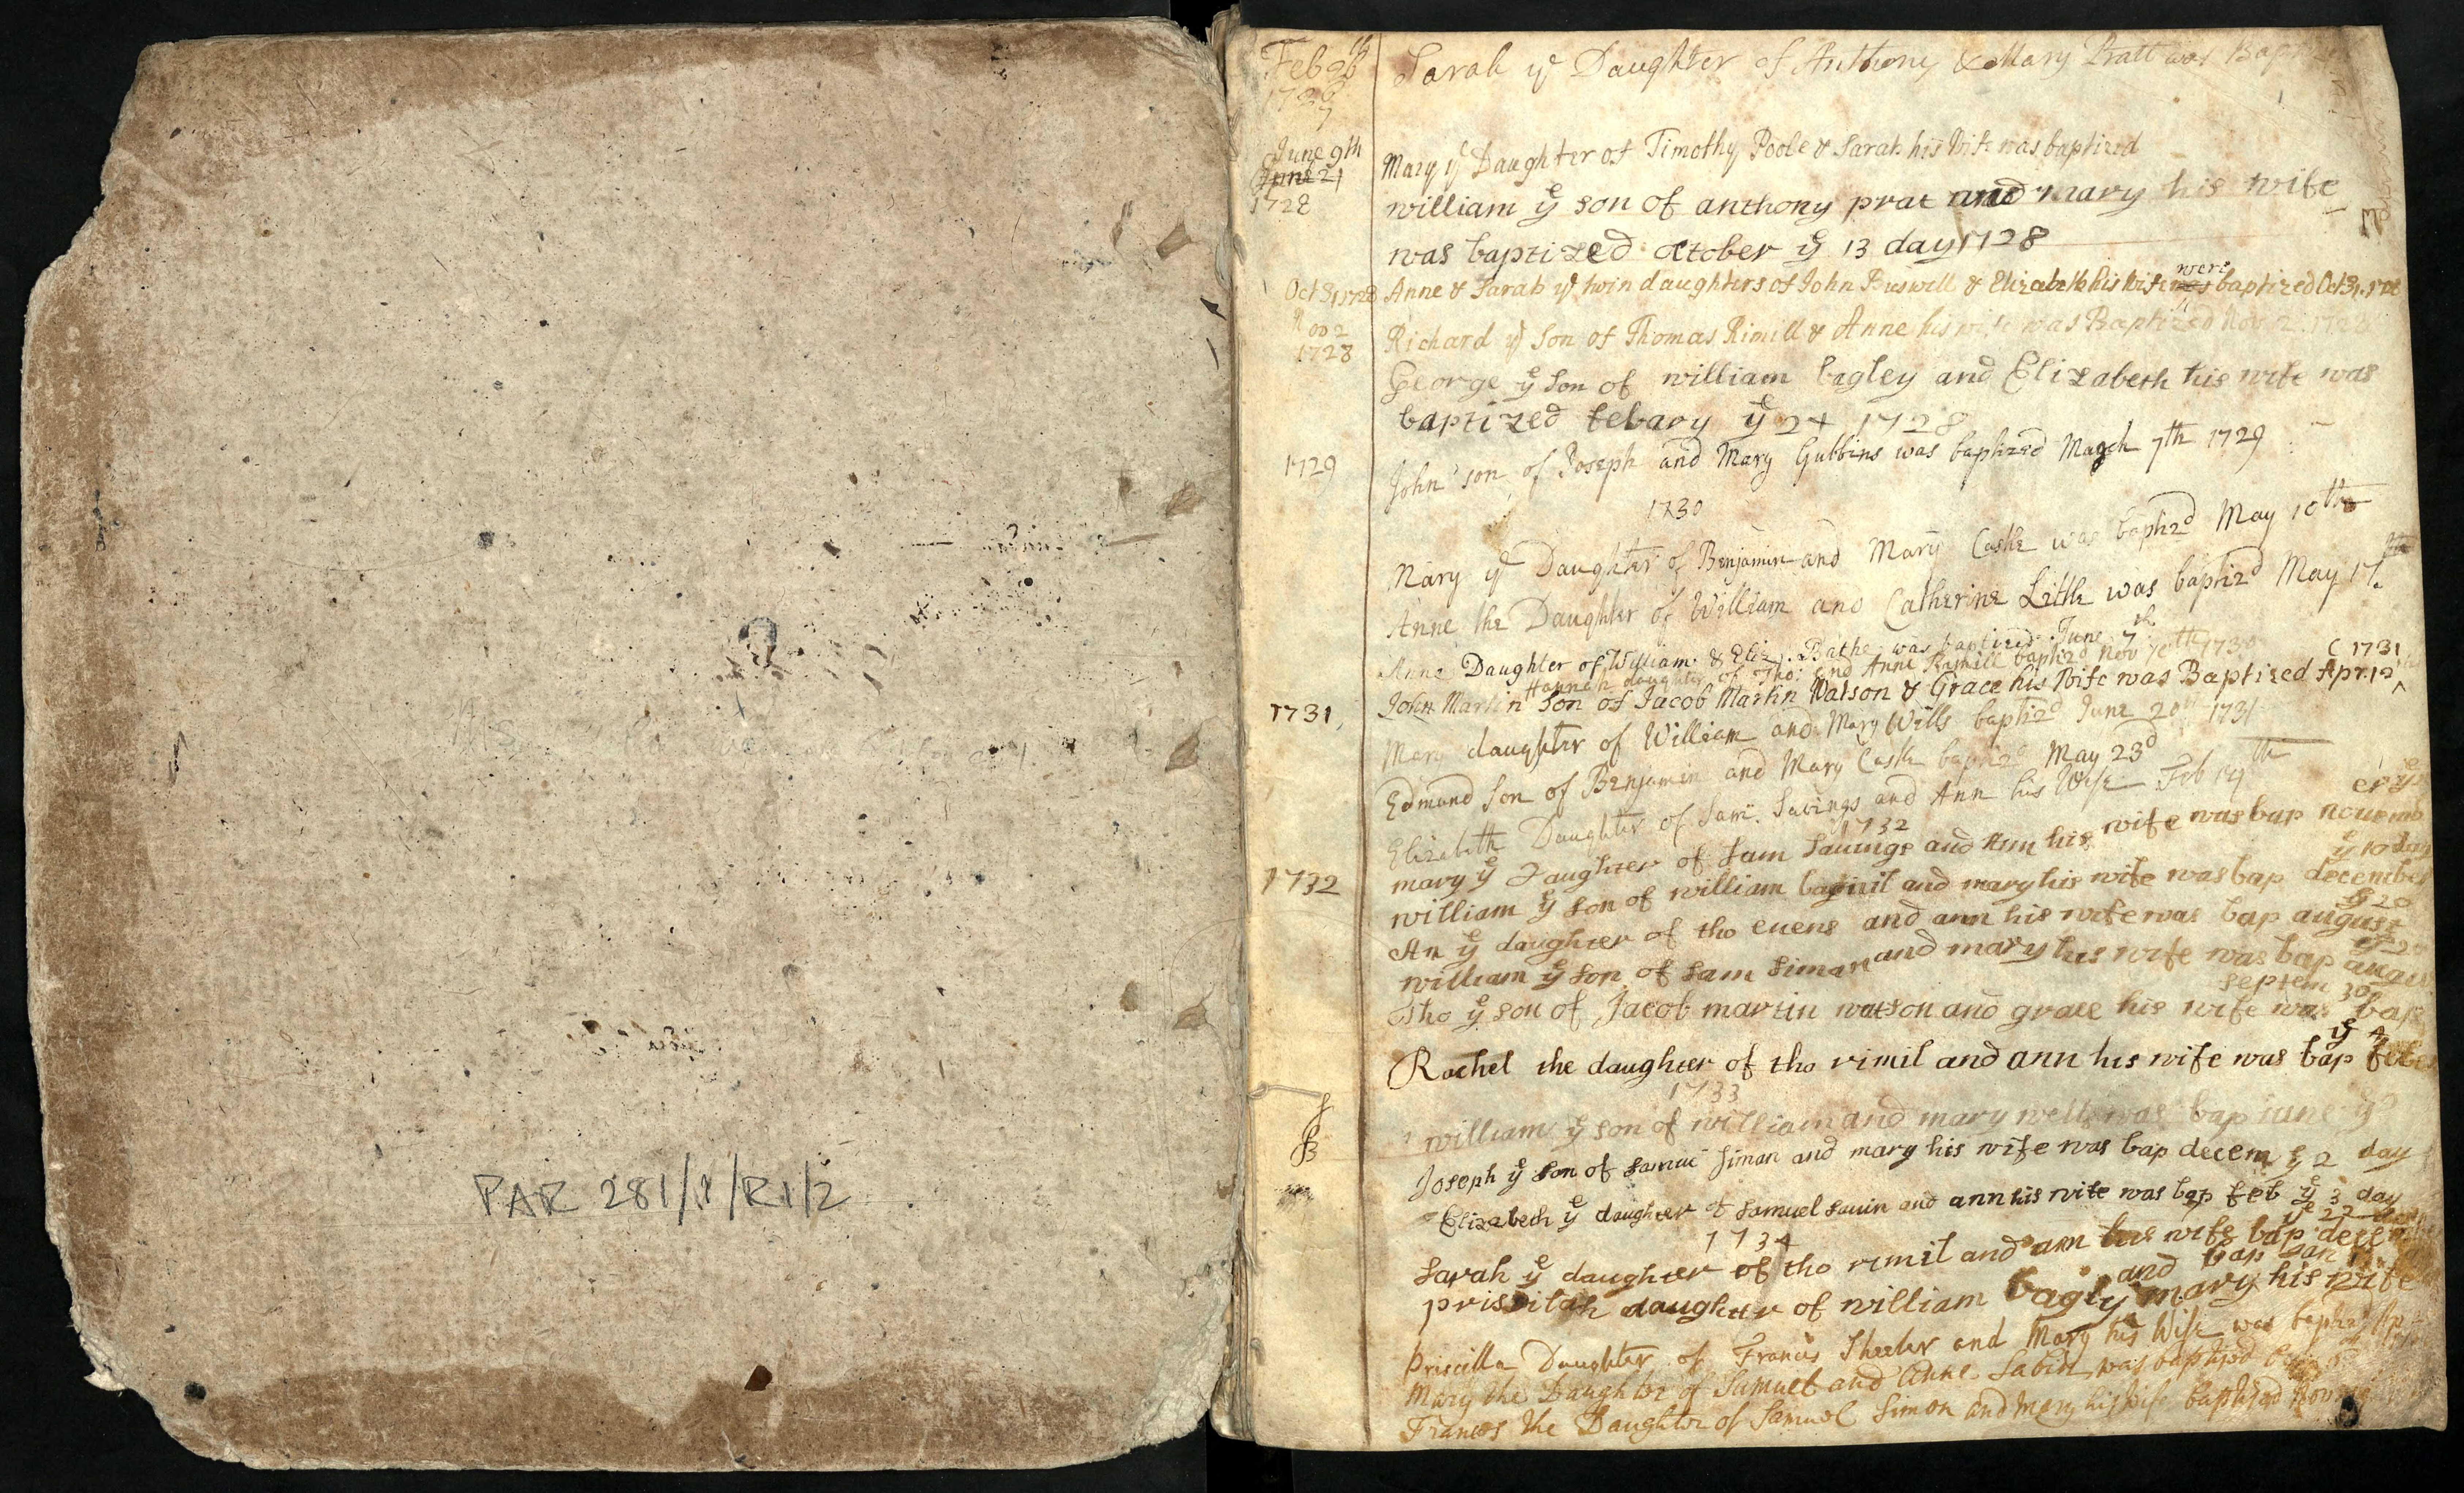 PAR 281/1/R1/2
Feb 26th
Sarah ye Daughter of Anthony & Mary Pratt was
172
7
June 9th
Mary ye Daughter of Timothy Poole & Sarah his Wife was baptized
June 21
1728
william ye son of anthony prat and mary his wife
was baptized october ye 13 day 1728
were
Oct 31 1728 Anne & Sarah ye twin daughters of John Buswell & Elizabeth his Wife was baptized Oct 31.
Nov 2
1728
Richard ye Son of Thomas Rimill & Anne his wife was Baptized Nov 2
George ye son of william bagley and Elizabeth his wife was
baptized febary ye 24 1728
1729
John son of Joseph and Mary Gubbins was baptized March 7th 1729
1730
Mary ye Daughter of Benjamin and Mary Caske was baptizd May 10th
Anne the Daughter of William and Catherine Little was baptizd May 17th
Anne Daughter of William & Eliz. Bathe was baptized June 7th
Hannah daughter of Tho: and Anne Rimill baptizd Nov 1730
( 1731
1731
John Martin Son of Jacob Martin Watson & Grace his Wife was Baptized Apr.
Mary daughter of William and Mary Wills baptizd June 20th 1731
Edmund Son of Benjamin and Mary Caske baptizd May 23d
Elizabeth Daughter of Sam: Savings and Ann his Wife Feb 19th
1732
er ye
mary ye Daughter of sam savings and Ann his wife was bap novemb
ye 10 day
1732
william ye son of william and mary his wife was bap december
ye 20
An ye daughter of tho evens and ann his wife was bap august
william ye son of sam siman and mary his wife was bap
septem 30
Tho ye son of Jacob martin watson and grace his wife was bap
ye 4
Rachel the daughter of tho rimil and ann his wife was bap
1733
william ye son of william and mary wells was bap iune ye
Joseph ye son of samuel siman and mary his wife was bap decem ye 2 day
Elizabeth ye daughter of samuel sauin and ann his wife was bap feb ye 3 day
1734
ye 22
Sarah ye daughter of tho rimil and ann his wife bap decem
and bap
daughter of william bagly mary his wife
Priscilla Daughter of Francis Sheeler and Mary his Wife was baptizd
Mary the Daughter of Samuel and Anne Sabin was baptized
Frances the Daughter of Samuel Simon and Mary his wife baptized